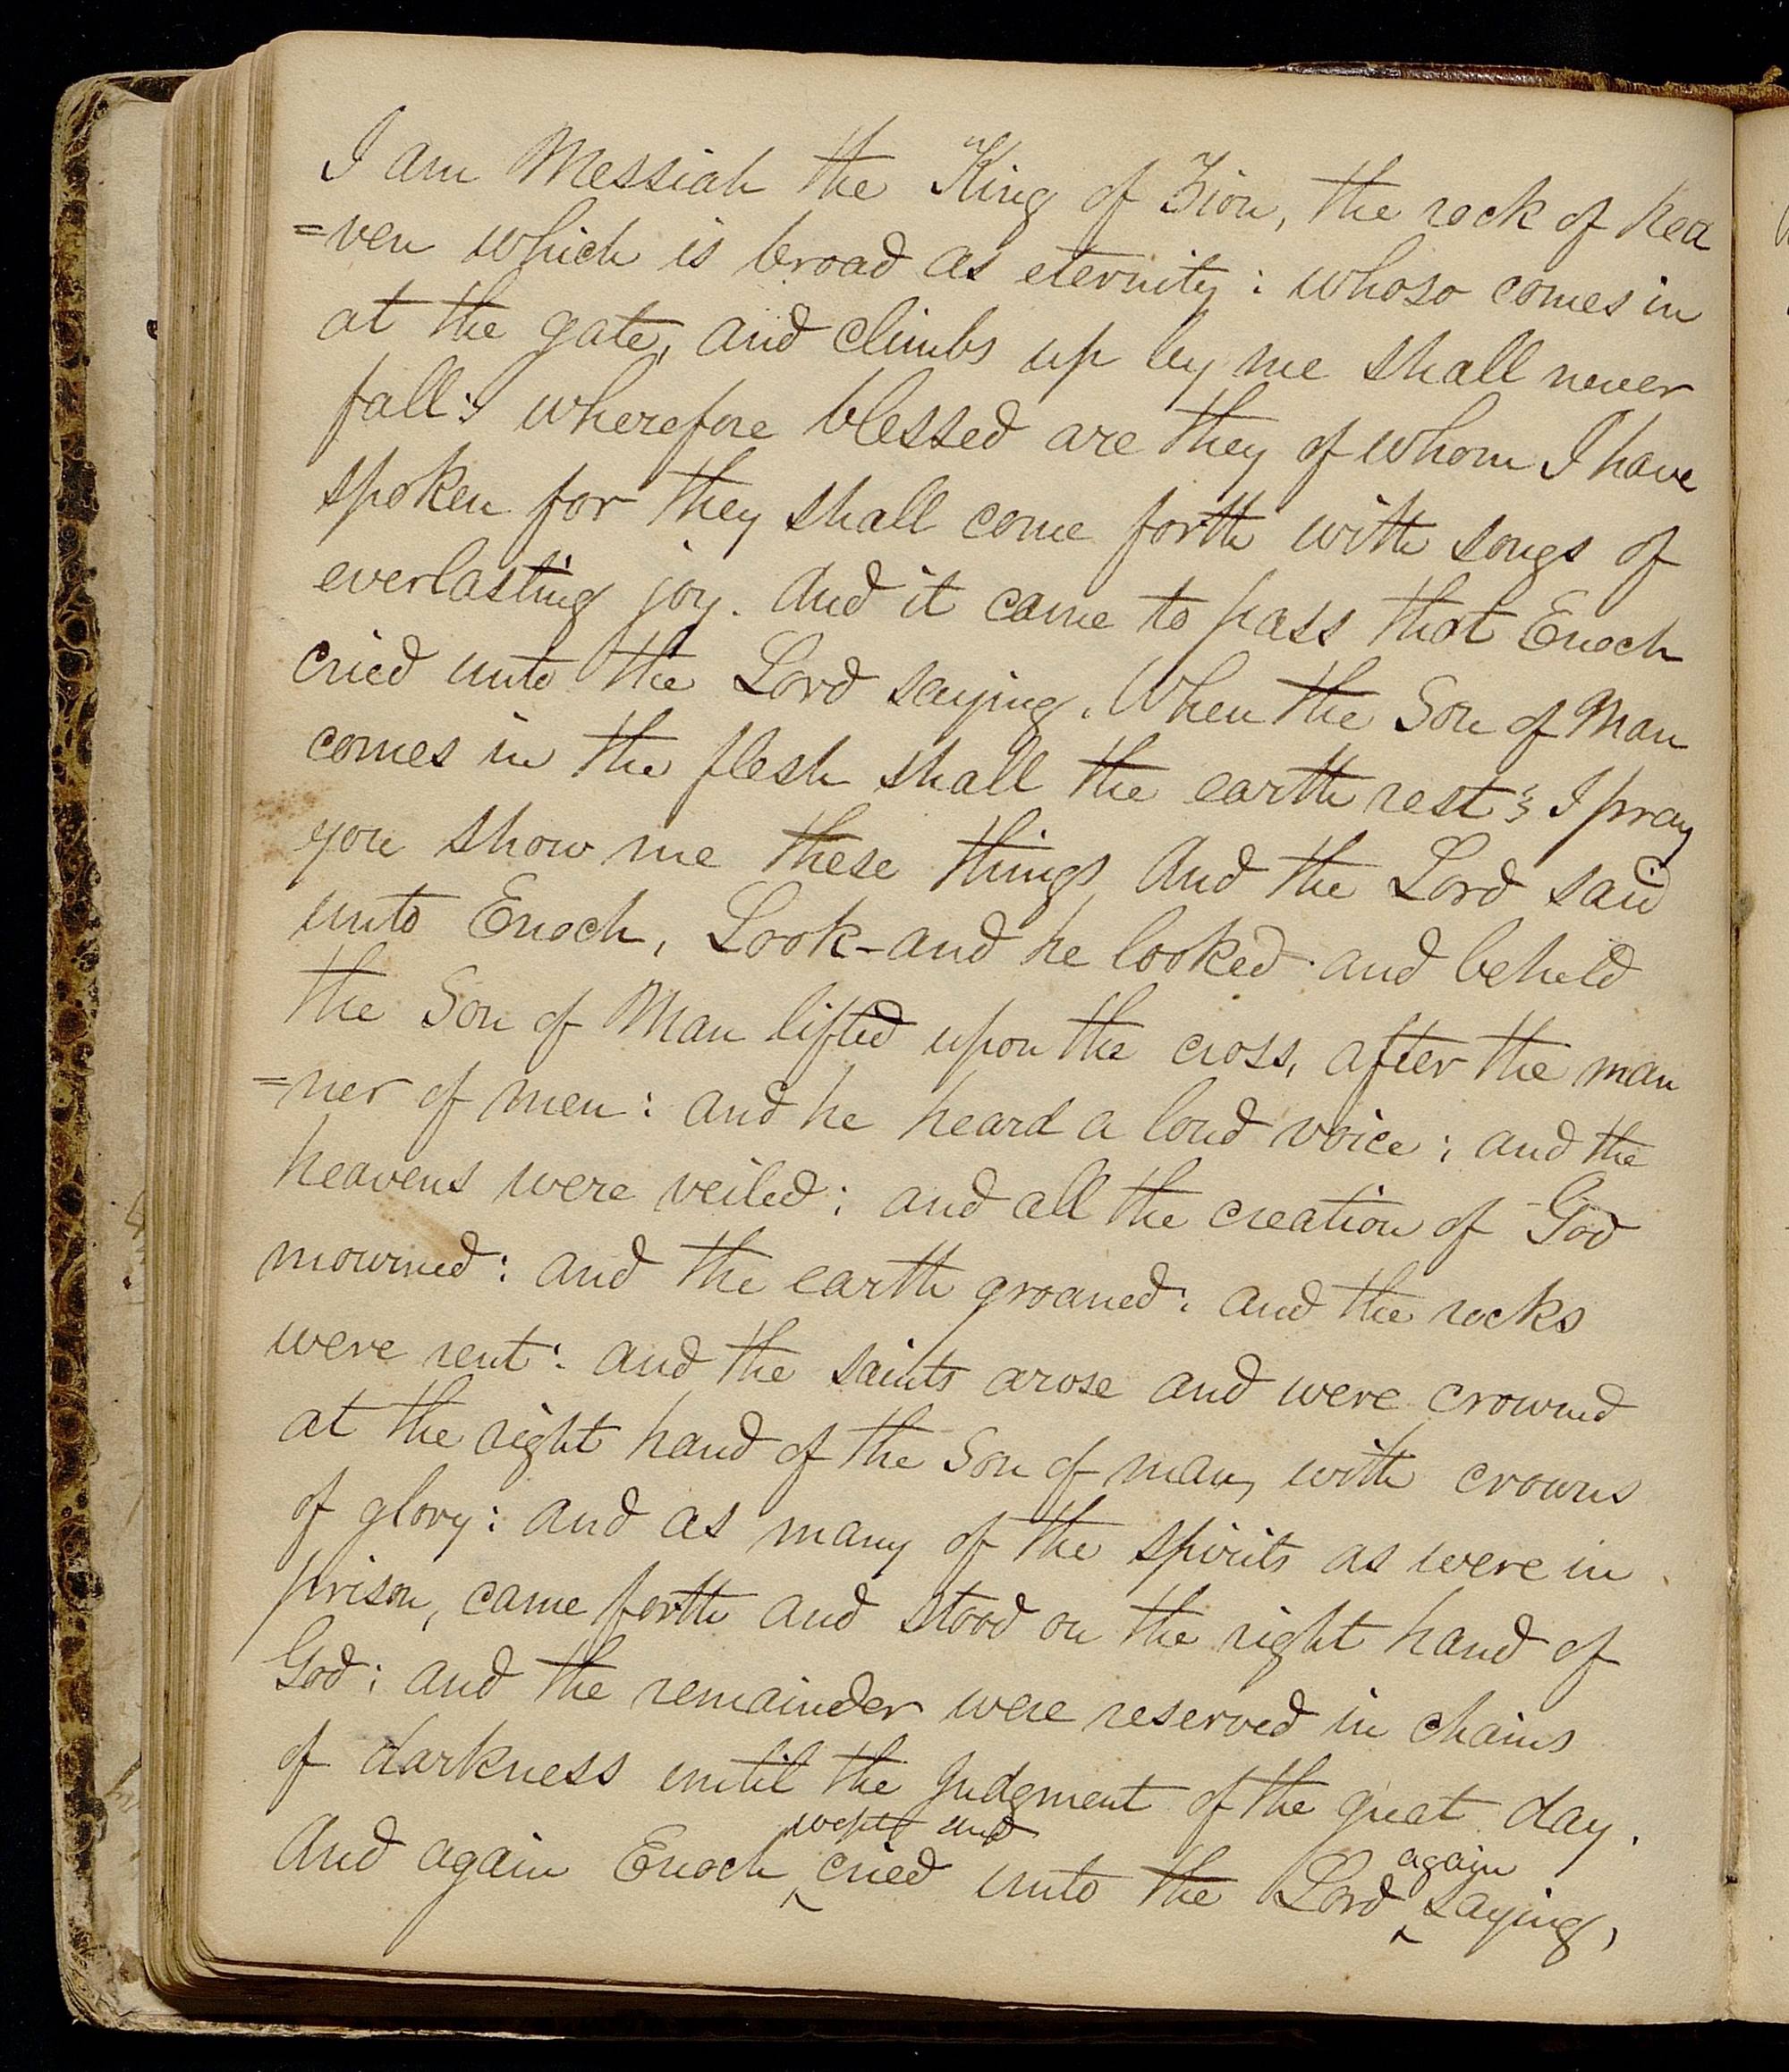 I am Messiah the King of Zion, the rock of hea
=ven which is broad as eternity: whoso comes in
at the gate, and climbs up by me shall never
fall: wherefore blessed are they of whom I have
spoken for they shall come forth with songs of
everlasting joy. And it came to pass that Enoch
cried unto the Lord saying, When the Son of Man
comes in the flesh shall the earth rest? I pray
you show me these things, And the Lord said
unto Enoch, Look-and he looked and beheld
the Son of Man lifted upon the cross, after the man
=ner of men: and he heard a loud voice; and the
heavens were veiled; and all the creation of God
mourned: and the earth groaned: and the rocks
were rent: and the saints arose and were crowned
at the right hand of the Son of man, with crowns
of glory: and as many of the spirits as were in
prison, came forth and stood on the right hand of
God; and the remainder were reserved in chains
of darkness until the judgment of the great day.
And again Enoch wept and cried unto the Lord again saying,